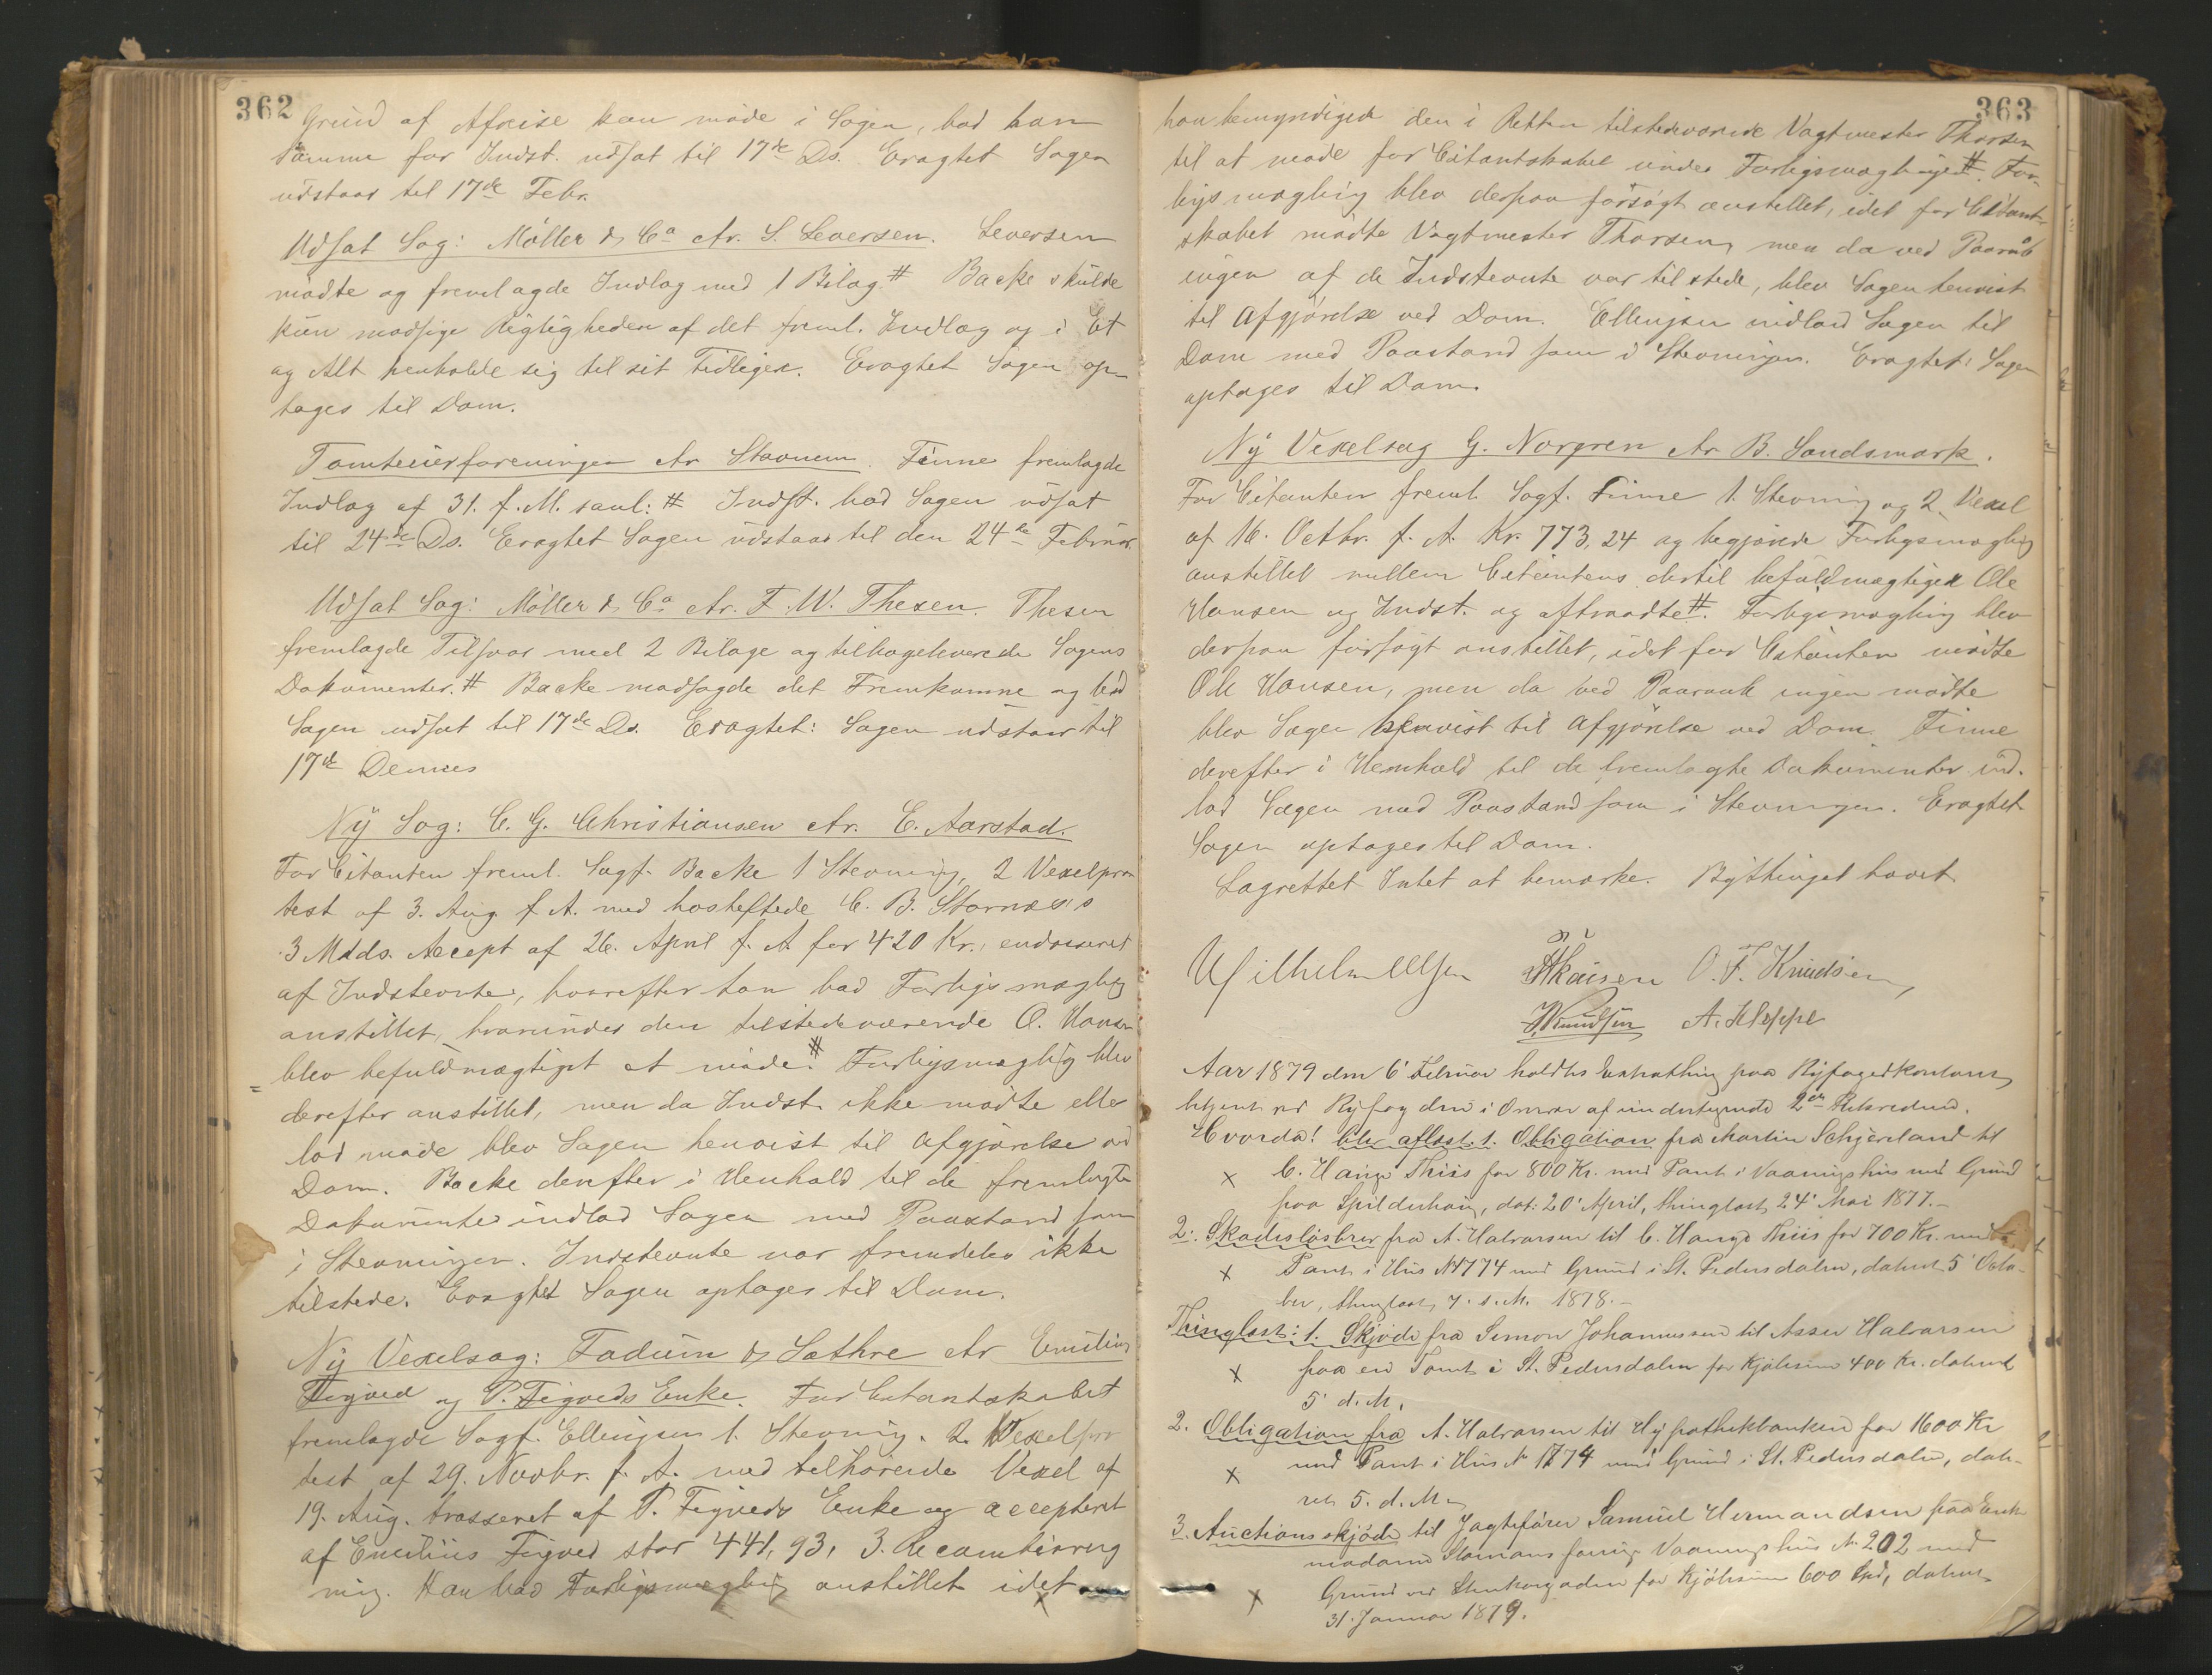 362
Grund af Afreise kan møde i Sagen, bad han
samme for Indst. udsat til 17de Ds. Eragtet Sagen
udstaar til 17de Febr.
Udsat Sag: Møller & Co ctr. S. Seversen. Seversen
mødte og fremlagde Indlæg med 1 Bilag # Backe skulde
kun modsige Rigtigheden af det freml. Indlæg og i Et
og Alt henholde sig til sit Tidligere. Eragtet Sagen op-
tages til Dom.
Tomteeierforeningen ctr Stavnem. Finne fremlagde
Indlæg af 31. f. M. saal: # Indst. bad Sagen udsat
til 24de Ds. Eragtet Sagen udstaar til den 24de Februar.
Udsat Sag: Møller & Co ctr. F. W. Thesen. Thesen
fremlagde Tilsvar med 2 Bilage og tilbageleverede Sagens
Dokumenter. # Backe modsagde det Fremkomne og bad
Sagen udsat til 17de Ds. Eragtet: Sagen udstaar til
17de Dennes
Ny Sag: C. G. Christiansen ctr. E. Aarstad.
For Citanten freml. Sagf. Backe 1 Stevning, 2 Vexelpro-
test af 3. Aug. f. A. med hosheftede C. B. Stornæs's
3 Mdds. Accept af 26. April f. A. for 420 Kr., endosseret
af Indstevnte, hvorefter han bad Forligsmægling
anstillet, hvorunder den tilstedeværende O. Hansen
blev befuldmægtiget at møde. # Forligsmægling blev
derefter anstillet, men da Indst. ikke mødte eller
lod møde blev Sagen henvist til Afgjørelse ved
Dom. Backe derefter i Henhold til de fremlagte
Dokumenter indlod Sagen med Paastand som
i Stevningen. Indstevnte var fremdeles ikke
tilstede. Eragtet Sagen optages til Dom.
Ny Vexelsag: Fadum & Sæthre ctr Emilius
Figved og P. Figveds Enke. For Citantskabet
fremlagde Sagf. Ellingsen 1. Stevning. 2. Vexelpro
test af 29. Novbr. f. A. med tilhørende Vexel af
19. Aug. trasseret af P. Figveds Enke og accepteret
af Emilius Figved stor 441,93, 3. Recambioreg
ning. Han bad Forligsmægling anstillet idet
363
han bemyndigede den i Retten tilstedeværende Vagtmester Thorsen
til at møde for Citantskabet under Forligsmæglingen #. For-
ligsmægling blev derpaa forsøgt anstillet, idet for Citant-
skabet mødte Vagtmester Thorsen, men da ved Paaraab
ingen af de Indstevnte var tilstede, blev Sagen henvist
til Afgjørelse ved Dom. Ellingsen indlod Sagen til
Dom med Paastand som i Stevningen. Eragtet: Sagen
optages til Dom.
Ny Vexelsag G. Norgren ctr B. Sandsmark.
For Citanten freml. Sagf. Finne 1. Stevning og 2. Vexel
af 16. Octbr. f. A. Kr. 773,24 og begjærede Forligsmægling
anstillet mellem Citantens dertil befuldmægtigede Ole
Hansen og Indst. og aftraadte #. Forligsmægling blev
derpaa forsøgt anstillet, idet for Citanten mødte
Ole Hansen, men da ved Paaraab ingen mødte
blev Sagen henvist til Afgjørelse ved Dom. Finne
derefter i Henhold til de fremlagte Dokumenter ind-
lod Sagen med Paastand som i Stevningen. Eragtet
Sagen optages til Dom.
Lagrettet Intet at bemærke. Bythinget hævet.
O. F. Knudsen
Knudsen A. Kleppe
Aar 1879 den 6' Februar holdtes Extrathing paa Byfogedkontoret,
betjent ved Byfogden i Overvær af undertegnede 2de Retsvidner.
Hvorda! blev aflæst 1. Obligation fra Martin Schjøreland til
C. Hauge Thiis for 800 Kr. med Pant i Vaaningshus med Grund
paa Spilderhaug, dat: 20' April, thinglæst 24' Mai 1877.
2: Skadesløsbrev fra A. Halvorsen til C. Hauge Thiis for 700 Kr. med
Pant i Hus No 1774 med Grund i St. Pedersdalen, dateret 5' Octo-
ber, thinglæst 7. s. M. 1878.
Thinglæst: 1. Skjøde fra Simon Johannessen til Asser Halvorsen
paa en Tomt i St. Pedersdalen for Kjøbesum 400 Kr. dateret
5' d. M.
2. Obligation fra A. Halvorsen til Hypothekbanken for 1600 Kr
med Pant i Hus No 1774 med Grund i St. Pedersdalen, date-
ret 5. d. M.
3. Auctionsskjøde til Jagtefører Samuel Hermandsen paa Enke
madame Slomans forrige Vaaningshus No 202 med
Grund ved Stenhorgaden for Kjøbesum 600 Spd, dateret
31. Januar 1879.